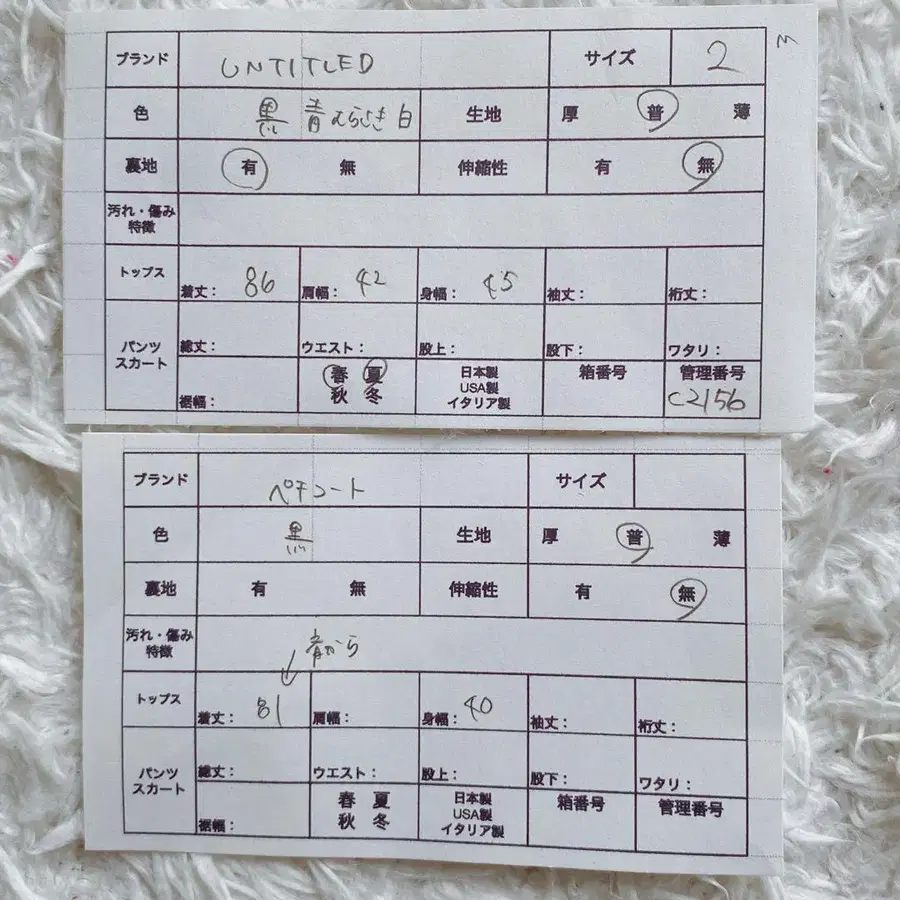 ブランド UNTITLED サイズ 2 M
色 黒 青むらさき白 生地 厚 普 薄
裏地 有 無 伸縮性 有 無
汚れ・傷み
特徴
トップス 着丈: 86 肩幅: 42 身幅: 45 袖丈: 裄丈:
パンツ
スカート
総丈: ウエスト: 股上: 股下: ワタリ:
裾幅: 春 夏
秋 冬
日本製
USA製
イタリア製
箱番号 管理番号
C2156
ブランド ペチコート サイズ
色 黒 生地 厚 普 薄
裏地 有 無 伸縮性 有 無
汚れ・傷み
特徴
から
トップス 着丈: 81 肩幅: 身幅: 40 袖丈: 裄丈:
パンツ
スカート
総丈: ウエスト: 股上: 股下: ワタリ:
裾幅: 春 夏
秋 冬
日本製
USA製
イタリア製
箱番号 管理番号